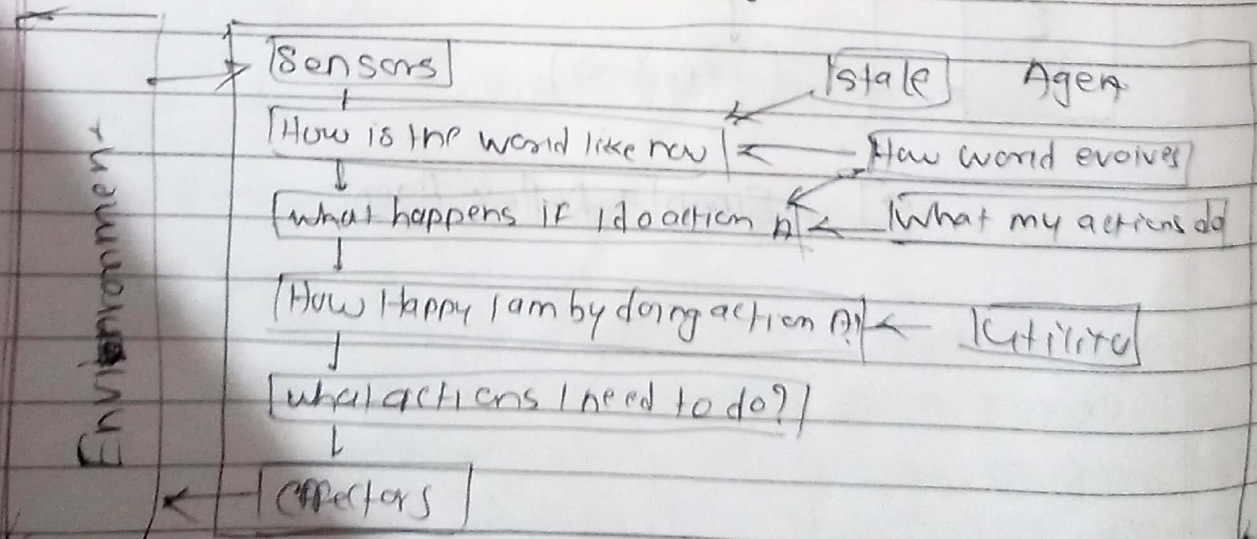 Sensors
State
Agent
How is the world like now
How world evolves
what happens if I do action A
What my actions do
How Happy I am by doing action A?
Utility
what actions I need to do?
effectors
Environment